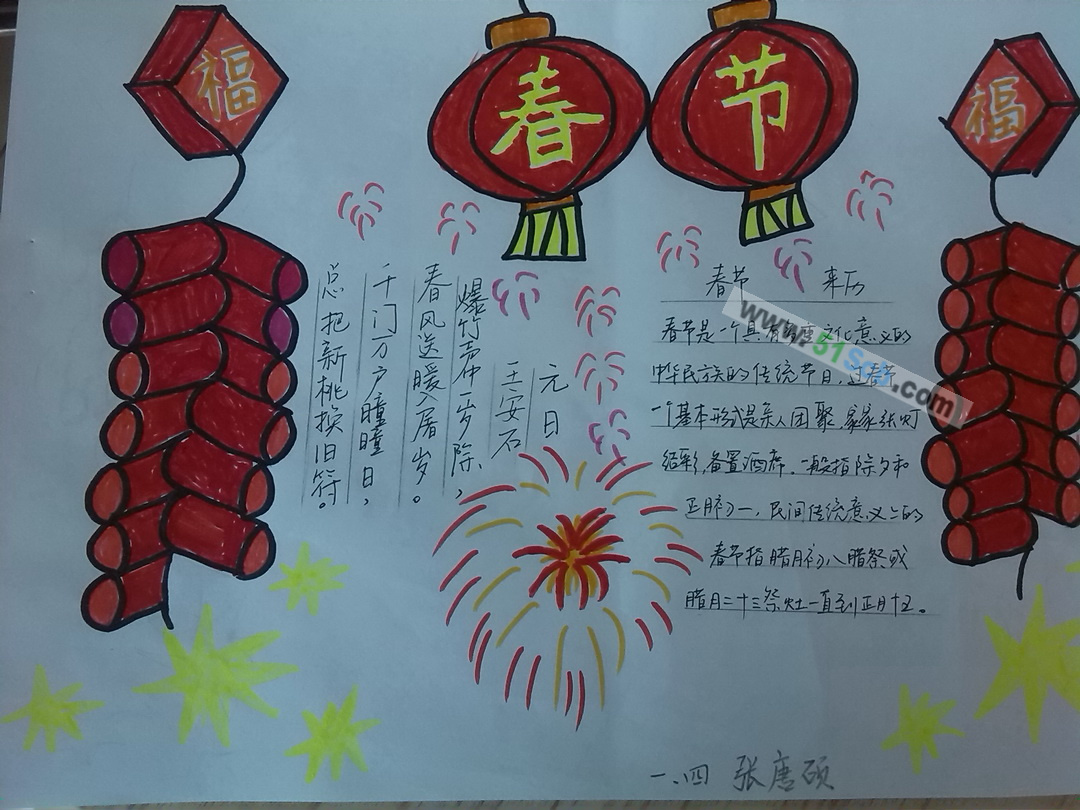 福
春节
福
元日
王安石
爆竹声中一岁除，
春风送暖入屠岁。
千门万户瞳瞳日，
总把新桃换旧符。
春节 来历
春节是一个具有 文化意义的
中华民族的传统节日，过春节
一个基本形式是亲人团聚，家家张灯
结彩，备置酒席。一般指除夕和
正月初一，民间传统意义上的
春节指腊月初八腊祭或
腊月二十三祭灶一直到正月十五。
www.51
.com
一、四 张唐硕